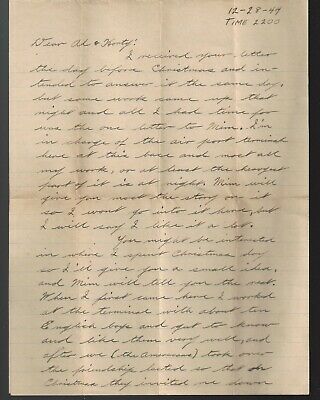 12-28-44
TIME 2200
Dear Al & Honty:
I received your letter
the day before Christmas and in-
tended to answer it the same day,
but some work came up that
night and all I had time for
was the one letter to Mim. I'm
in charge of the air port terminal
here at this base and most all
my work, or at least the heaviest
part of it is at night. Mim will
give you most the story on it
so I wont go into it here, but
I will say I like it a lot.
You might be interested
in where I spent Christmas day
so I'll give you a small idea,
and Mim will tell you the rest.
When I first came here I worked
at the terminal with about ten
English boys and got to know
and like them very well, and
after we (the Americans) took over
the friendship lasted so that on
Christmas they invited me down